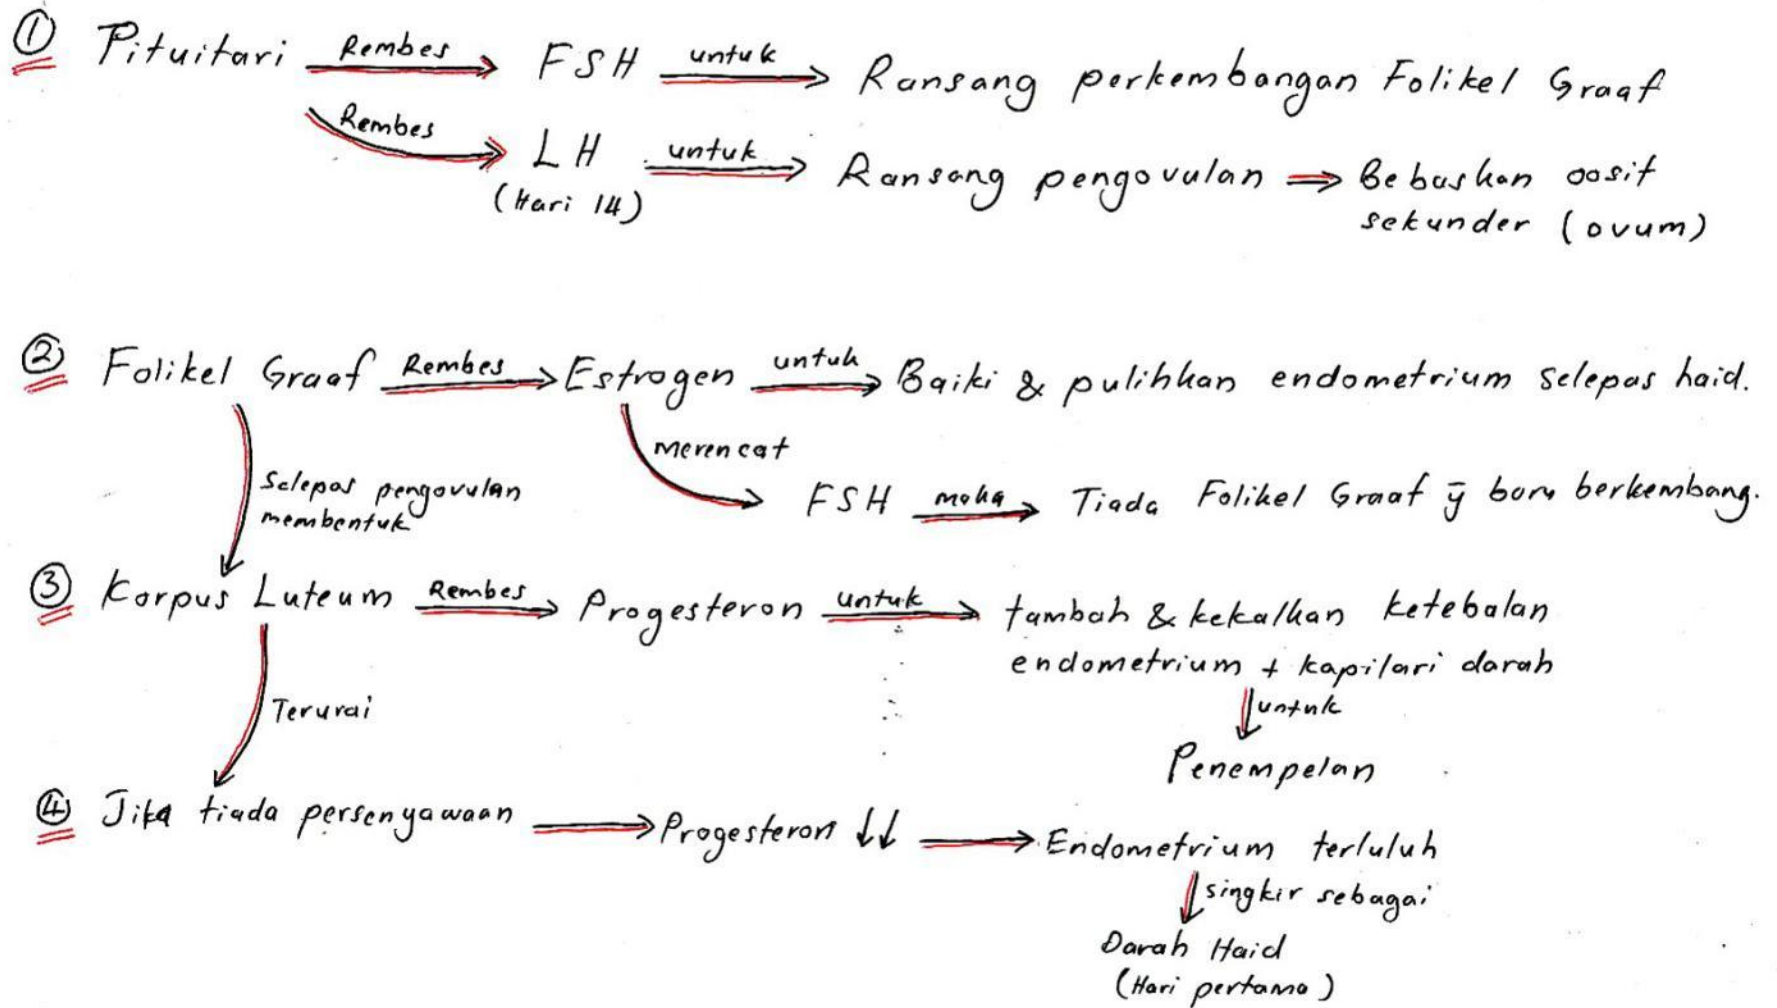 ① Pituitari Rembes FSH untuk Ransang perkembangan Folikel Graaf
Rembes LH untuk Ransang pengovulan ⇒ Bebaskan oosit
(Hari 14) sekunder (ovum)
② Folikel Graaf Rembes Estrogen untuk Baiki & pulihkan endometrium selepas haid.
merencat
Selepas pengovulan
membentuk
FSH maka Tiada Folikel Graaf ȳ baru berkembang.
③ Korpus Luteum Rembes Progesteron untuk tambah & kekalkan ketebalan
endometrium + kapilari darah
Terurai
untuk
Penempelan
④ Jika tiada persenyawaan → Progesteron ↓↓ → Endometrium terluluh
singkir sebagai
Darah Haid
(Hari pertama)